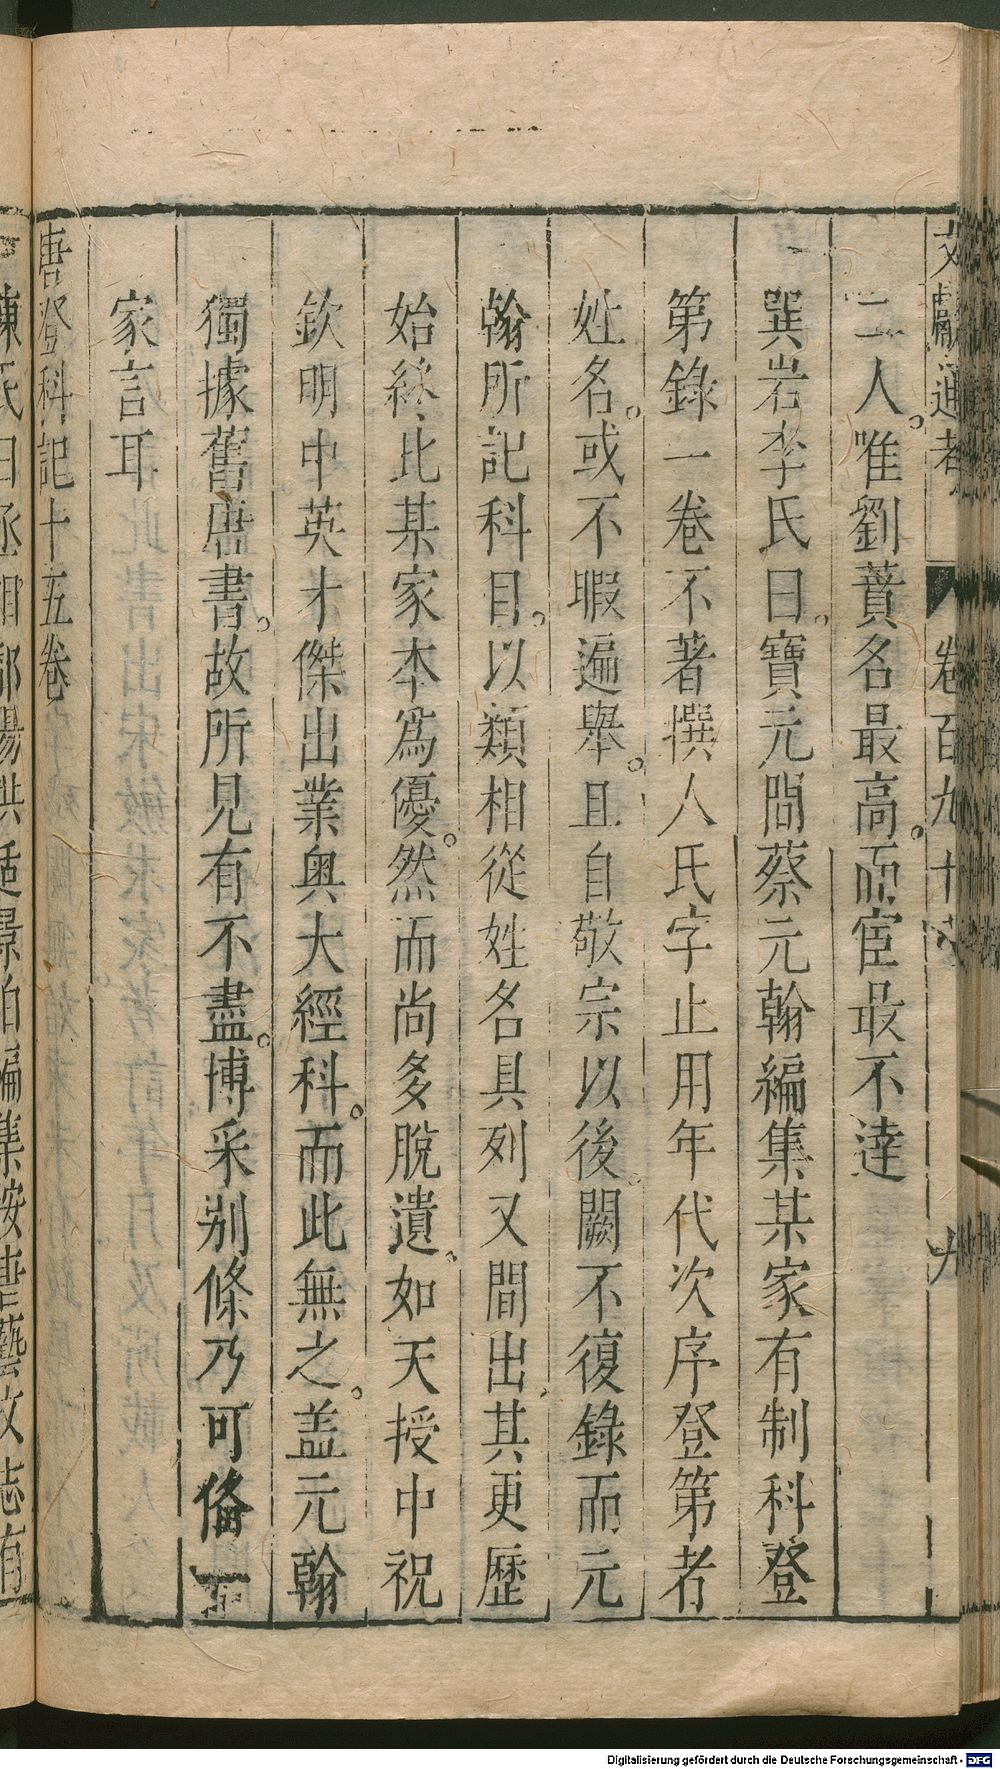 文獻通考 卷百九十 九
二人。唯劉蕡名最高。而宦最不達
巽岩李氏曰。寶元間蔡元翰編集某家有制科登
第錄一卷不著撰人氏字止用年代次序登第者
姓名。或不暇遍舉。且自敬宗以後。闕不復錄而元
翰所記科目。以類相從姓名具列又間出、其更歷
始終、比某家本為優。然而尚多脫遺。如天授中祝
欽明中英才傑出業奧大經科。而此無之。盖元翰
獨據舊唐書。故所見有不盡。博采别條乃可俻一
家言耳
唐登科記十五卷
陳氏曰丞相鄱陽洪适景伯編集按唐藝文志有
Digitalisierung gefördert durch die Deutsche Forschungsgemeinschaft - DFG